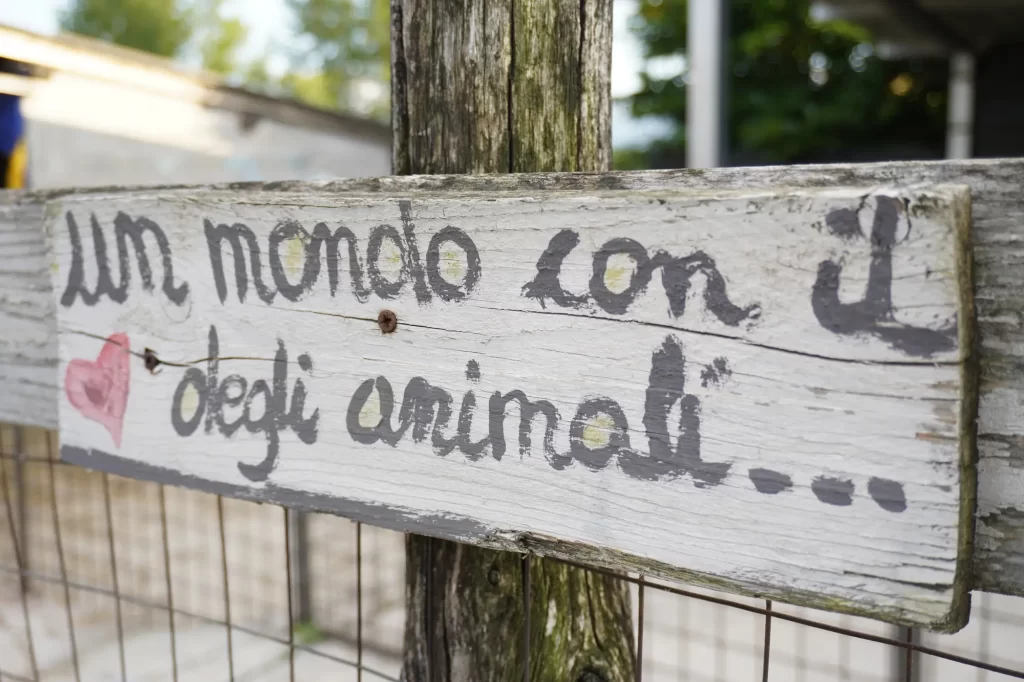 un mondo con il
degli animali...